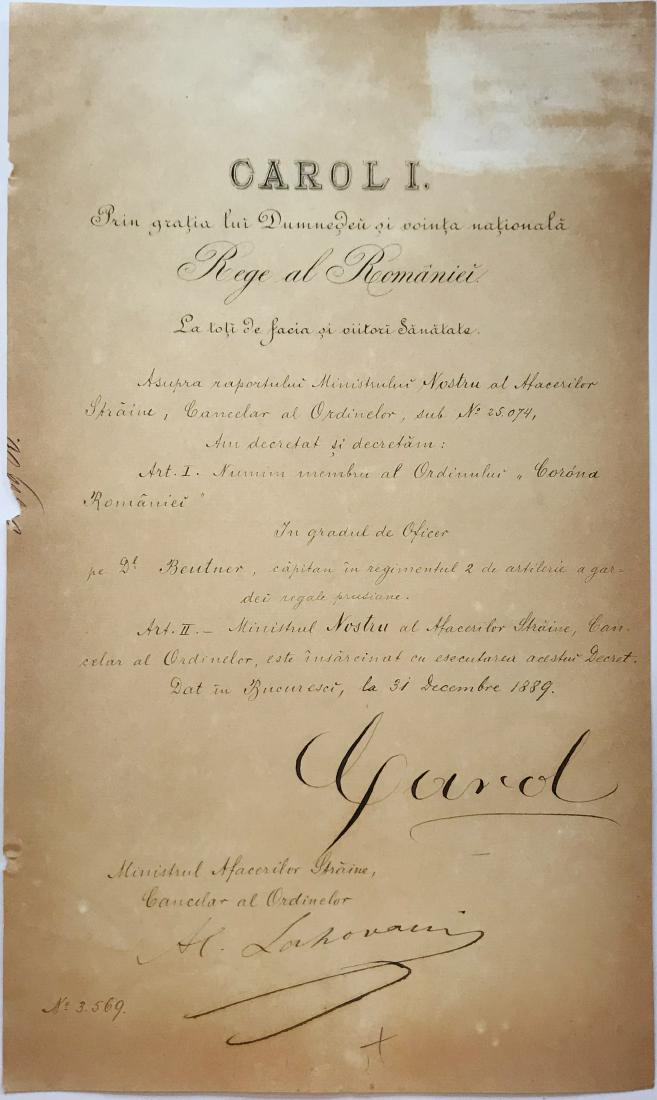 CAROL I.
Prin grația lui Dumnedeŭ și voința națională
Rege al Românieĭ.
La toți de facia și viitori Sănătate.
Asupra raportuluĭ Ministruluĭ Nostru al Afacerilor
Străine, Cancelar al Ordinelor, sub Nº 25.074,
Am decretat și decretăm:
Art. I. Numim membru al Ordinuluĭ „Coróna
Românieĭ"
In gradul de Oficer
pe Dˡ Beutner, căpitan în regimentul 2 de artilerie a gar-
dei regale prusiane.
Art. II. – Ministrul Nostru al Afacerilor Străine, Can-
celar al Ordinelor, este însărcinat cu esecutarea acestuĭ Decret.
Dat în Bucurescĭ, la 31 Decembre 1889.
Carol
Ministrul Afacerilor Străine,
Cancelar al Ordinelor
Al. Lahovari
Nº 3.569.